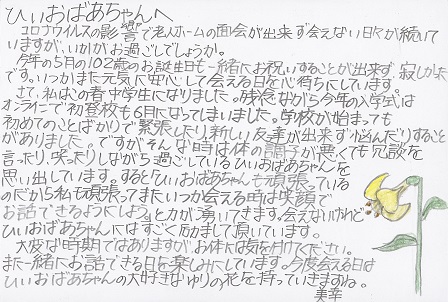 ひいおばあちゃんへ
コロナウイルスの影響で老人ホームの面会が出来ず会えない日々が続いて
いますが、いかがお過ごしでしょうか。
今年の5月の102歳のお誕生日も一緒にお祝いすることが出来ず、寂しかった
です。いつかまた元気に安心して会える日を心待ちにしています。
さて、私はこの春中学生になりました。残念ながら今年の入学式は
オンラインで初登校も6月になってしまいました。学校が始まっても
初めてのことばかりで緊張したり、新しい友達が出来ず悩んだりすること
がありました。ですが、そんな時は体の調子が悪くても冗談を
言ったり、笑ったりしながら過ごしているひいおばあちゃんを
思い出しています。すると「ひいおばあちゃんも頑張っている
のだから私も頑張ってまたいつか会える時は笑顔で
お話できるようにしよう」と力が湧いてきます。会えないけれど
ひいおばあちゃんにはすごく励まして頂いています。
大変な時期ではありますが、お体には気を付けてください。
また一緒にお話できる日を楽しみにしています。今度会える日は
ひいおばあちゃんの大好きなゆりの花を持っていきますね。
美幸